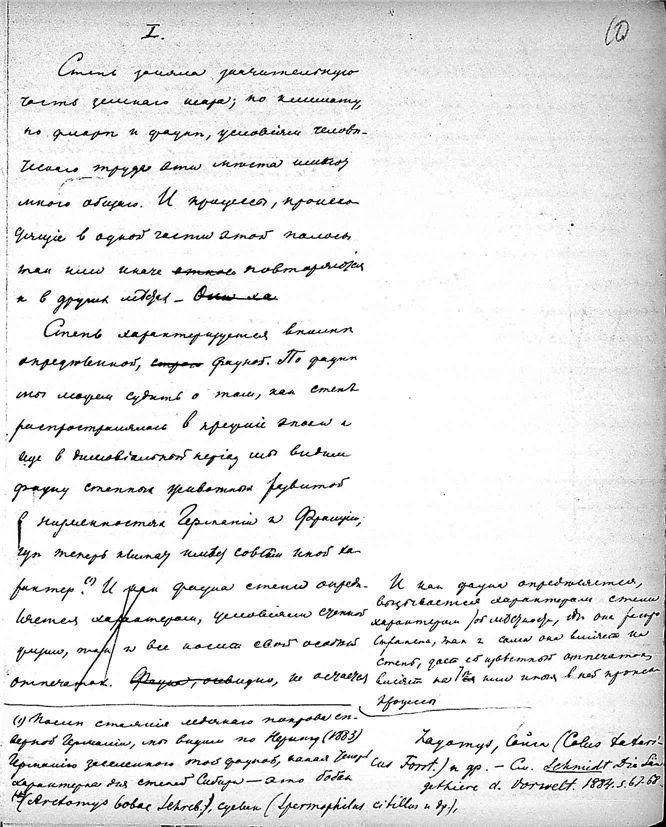 I.
(1)
Степь заняла значительную
часть земного шара; по климату,
по флоре и фауне, условіям человѣ-
ческаго труда эти мѣста имѣют
много общаго. И процессы, происхо-
дящіе в одной части этой полосы
так или иначе повторяются
и в других мѣстах –
Степь характеризуется вполне
определенной, фауной. По фауне
мы можем судить о том, как степь
распространялась в прежніе эпохи и
еще в дилювіальной період мы видим
фауну степных животных развитой
в низменностях Германіи и Франціи,
где теперь климат имѣет совсем иной ха-
рактер.(1) И при фауна степи опредѣ-
ляется характером, условіями степной
и все носит свой особый
отпечаток. Фауна, очевидно, не остается
И как фауна опредѣляется,
вызывается характером степи
характером мѣстности, где она распро-
странена, так и сама она вліяет на
степь, дает ей известной отпечаток,
вліяет на те или иныя в ней происх.
процессы
(1) После стаянія ледяного покрова сѣ-
верной Германіи, мы видим по Нерингу (1883)
Германію заселенной той фауной, какая теперь
характерна для степей Сибири – это бобак
(Arctomys bobac Schreb.), суслик (Spermophilus citillus и др),
Lagomys, Сайга (Colus tatari-
cus Forst.) и др. – См. Schmidt Die Säu-
gethiere d. Vorwelt. 1884. s. 67-68.